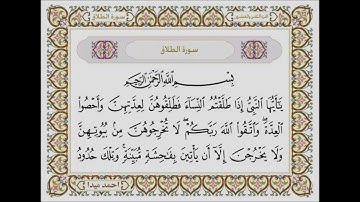 سورة الطلاق
الجزء الثامن والعشرون
سورة الطلاق
بِسْمِ اللَّهِ الرَّحْمَٰنِ الرَّحِيمِ
يَٰٓأَيُّهَا النَّبِيُّ إِذَا طَلَّقْتُمُ النِّسَآءَ فَطَلِّقُوهُنَّ لِعِدَّتِهِنَّ وَأَحْصُوا
الْعِدَّةَ ۖ وَاتَّقُوا اللَّهَ رَبَّكُمْ ۖ لَا تُخْرِجُوهُنَّ مِنۢ بُيُوتِهِنَّ
وَلَا يَخْرُجْنَ إِلَّآ أَن يَأْتِينَ بِفَٰحِشَةٍ مُّبَيِّنَةٍ ۚ وَتِلْكَ حُدُودُ
احمد ميدا